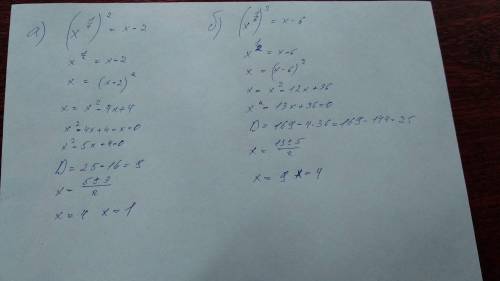 а) (x^{1/4})^2 = x-2
x^{1/2} = x-2
x = (x-2)^2
x = x^2-4x+4
x^2-4x+4-x=0
x^2-5x+4=0
D = 25-16=9
x = \frac{5±3}{2}
x=4 x=1
б) (x^{1/4})^2 = x-6
x^{1/2} = x-6
x = (x-6)^2
x = x^2-12x+36
x^2-13x+36=0
D=169-4·36=169-144=25
x = \frac{13±5}{2}
x=9 x=4